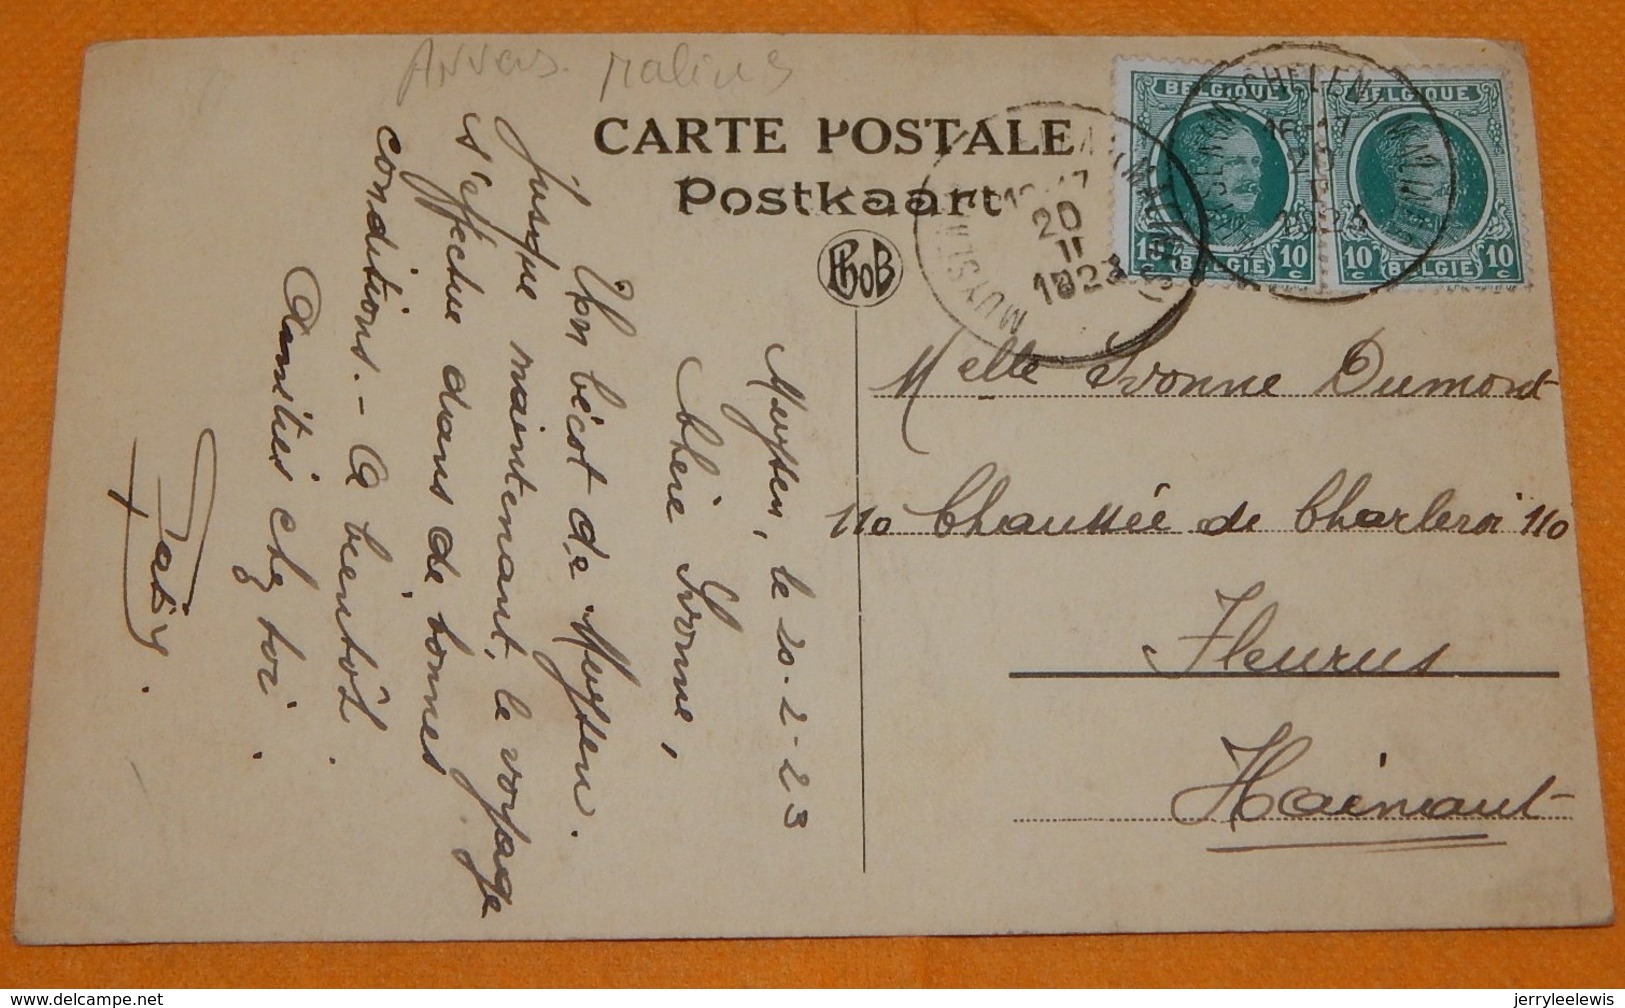 Anvers. Malines
CARTE POSTALE
Postkaart
PhoB
BELGIQUE
BELGIQUE
10c BELGIE 10c
10c BELGIE 10c
MUYSEN (MECHELEN) MUYSEN (MALINES)
16-17
20
II
1923
Muysen, le 20-2-23
Chère Yvonne,
Un bécot de Muysen.
Jusque maintenant, le voyage
s'effectue dans de bonnes
conditions. - A bientôt.
Amitiés chez toi.
Gaby.
Melle Yvonne Dumont
110 Chaussée de Charleroi 110
Fleurus
Hainaut
delcampe.net
jerryleelewis